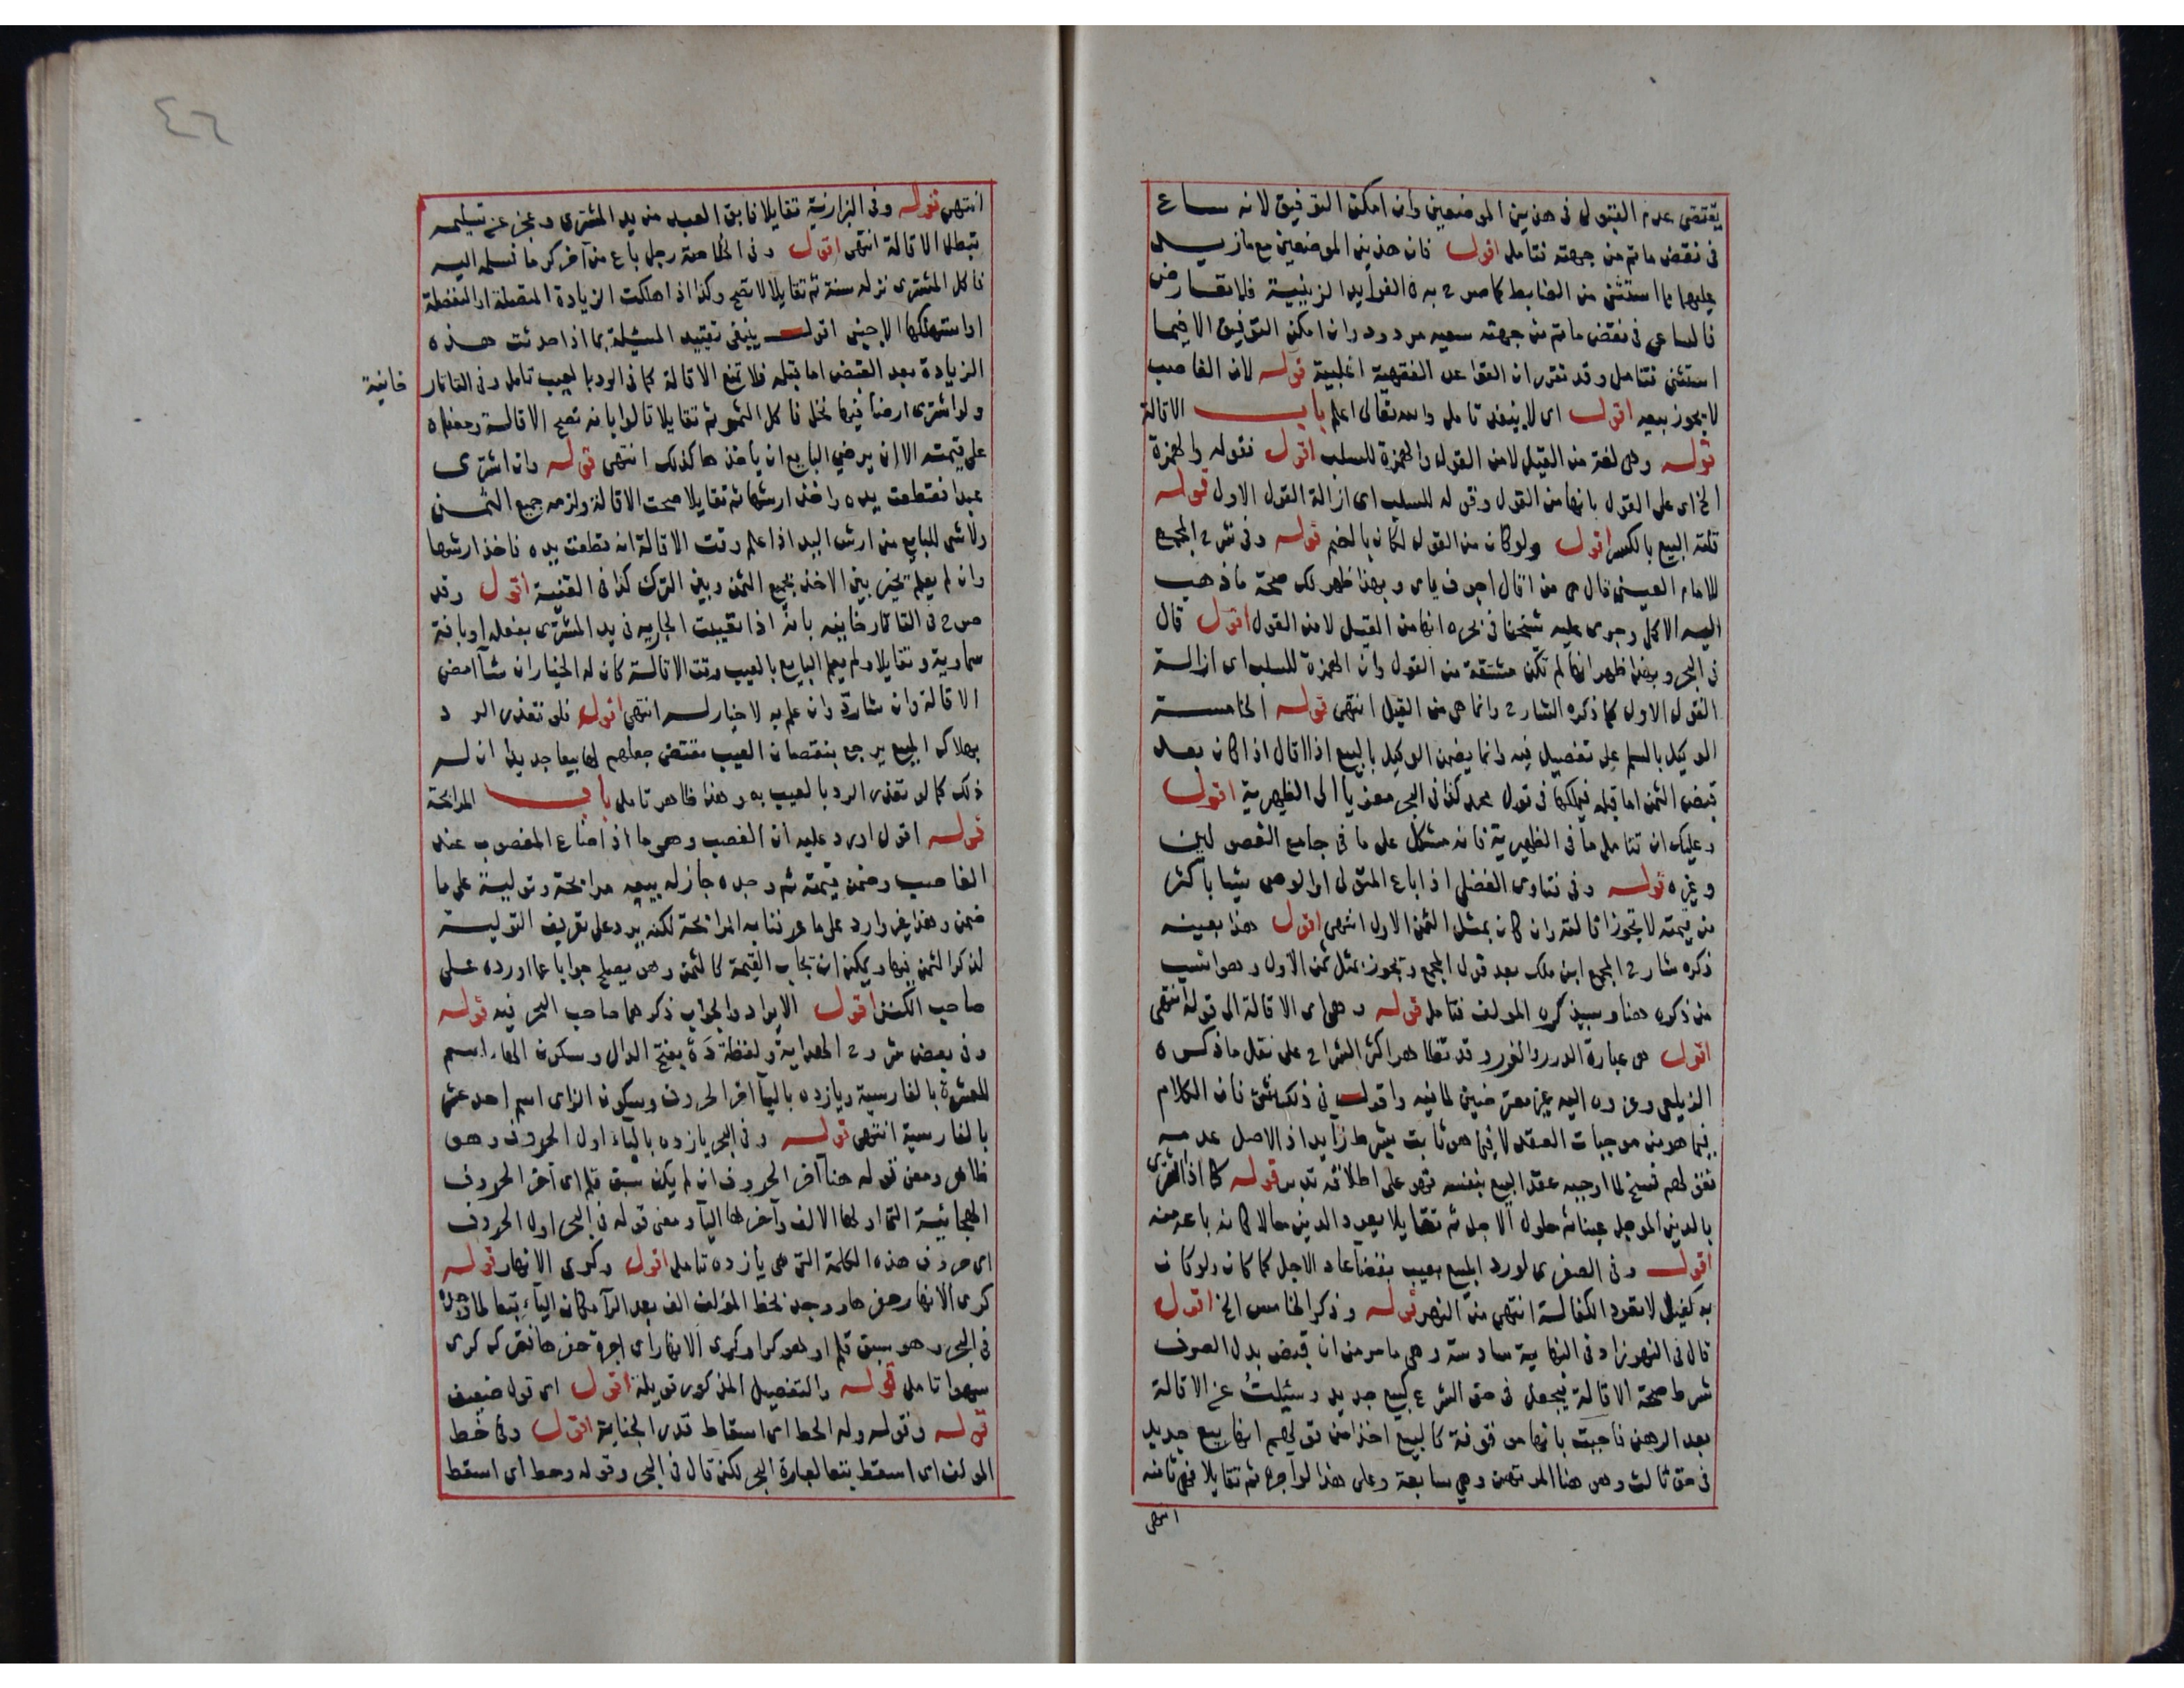 يقتضى عدم القبول فى هذين الموضعين وان امكن التوفيق لانه ساع
فى نقض ماتم من جهته فتامل اقول فان هذين الموضعين مع مازيد
عليهما مما استثنى من الضابط كما صرح به فى الفوايد الزينية فلا تعارض
فالساعى فى نقض ماتم من جهته سعيه مردود وان امكن التوفيق الا فيما
استثنى فتامل وقد تقرر ان القواعد الفقهية اغلبية قوله لان الغاصب
لا يجوز بيعه اقول اى لا ينفذ تامل والله تعالى اعلم باب الاقالة
قوله وهى لغة من القيل لامن القول والهمزة للسلب اقول فقوله والهمزة
الخ اى على القول بانها من القول وقوله للسلب اى ازالة القول الاول قوله
قلته البيع بالكسر اقول ولو كان من القول لكان بالضم قوله وفى شرح المجمع
للامام العينى قال هى من اقال اجوف ياى وبهذا ظهر لك صحة ماذهب
اليه الاكمل وجرى عليه شيخنا فى بحره انها من القيل لامن القول اقول قال
فى البحر وبهذا ظهر انها لم تكن مشتقة من القول وان الهمزة للسلب اى ازالة
القول الاول كما ذكره الشارح وانما هى من القيل انتهى قوله الخامسة
الوكيل بالسلم على تفصيل فيه وانما يضمن الوكيل بالبيع اذا اقال اذا كان بعد
قبض الثمن اما قبله فيملكها فى قول محمد كذا فى البحر معزيا الى الظهيرية اقول
وعليك ان تتامل ما فى الظهيرية فانه مشكل على ما فى جامع الفصولين
وغيره قوله وفى فتاوى الفضلى اذا باع المتولى او الوصى شيا باكثر
من قيمته لا تجوز اقالته وان كان بمثل الثمن الاول انتهى اقول هذا بعينه
ذكره شارح المجمع ابن ملك بعد قول المجمع وتجوز بمثل ثمن الاول وهو انسب
من ذكره هنا وسيذكره المولف فتامل قوله وهى اى الاقالة الى قوله انتهى
اقول هى عبارة الدرر والغرر وقد تظاهر اكثر الشراح على نقل ماذكره
الزيلعى وعزوه اليه غير معترضين لما فيه واقول فى ذلك شئ فان الكلام
فيما هو من موجبات العقد لا فيما هو ثابت بشرط زايد اذ الاصل عدمه
فقولهم فسخ لما اوجبه عقد البيع بنفسه فهو على اطلاقه تدبر قوله كما اذا اشترى
بالدين الموجل عينا ثم حلول الاجل ثم تقايلا يعود الدين حالا كانه باعه منه
اقول وفى الصغرى لورد المبيع بعيب بقضا عاد الاجل كما كان ولو كان
به كفيل لا تعود الكفالة انتهى من النهر قوله وذكر الخامس الخ اقول
قال فى النهر زاد فى النهاية سادسة وهى مامر من ان قبض بدل الصرف
شرط صحة الاقالة فيجعل فى حق الشرع كبيع جديد وسئلت عن الاقالة
بعد الرهن فاجبت بانها موقوفة كالبيع اخذا من قولهم انها بيع جديد
فى حق ثالث وهو هنا المرتهن وهى سابعة وعلى هذا لو اجره ثم تقايلا فهى ثامنة
انتهى
٤٦
انتهى قوله وفى البزازية تقايلا فابق العبد من يد المشترى وعجز عن تسليمه
تبطل الاقالة انتهى اقول وفى الخلاصة رجل باع من آخر كرما فسلمه اليه
فاكل المشترى نزله سنة ثم تقايلا لا تصح وكذا اذا هلكت الزيادة المتصلة او المنفصلة
او استهلكها الاجنبى اقول ينبغى تقييد المسئلة بما اذا حدثت هذه
الزيادة بعد القبض اما قبله فلا تمنع الاقالة كما فى الرد بالعيب تامل وفى التاتار
خانية
ولو اشترى ارضا فيها نخل فاكل الثمر ثم تقايلا قالوا بانه تصح الاقالة ومعناه
على قيمته الا ان يرضى البايع ان ياخذها كذلك انتهى قوله وان اشترى
عبدا فقطعت يده واخذ ارشها ثم تقايلا صحت الاقالة ولزمه جميع الثمن
ولاشى للبايع من ارش اليد اذا علم وقت الاقالة انه قطعت يده فاخذ ارشها
وان لم يعلم يخير بين الاخذ بجميع الثمن وبين الترك كذا فى القنية اقول وقد
صرح فى التاتارخانيه بانه اذا تعيبت الجاريه فى يد المشترى بفعله او بافة
سماوية وتقايلا ولم يعلم البايع بالعيب وقت الاقالة كان له الخيار ان شآ امضى
الاقالة وان شارد وان علم به لا خيار له انتهى اقول فلو تعذر الرد
بهلاك المبيع يرجع بنقصان العيب مقتضى جعلهم لها بيعا جديدا ان له
ذلك كما لو تعذر الرد بالعيب به وهذا ظاهر تامل باب المرابحة
قوله اقول اورد عليه ان الغصب وهى ما اذا ضاع المغصوب عند
الغاصب وضمن قيمته ثم وجده جازله بيعه مرابحة وتولية على ما
ضمن وهذا غير وارد على ما عرفنا به المرابحة لكنه يرد على تعريف التولية
لذكر الثمن فيها ويمكن ان يجاب القيمة كالثمن وهو يصلح جوابا عما اورده على
صاحب الكنز اقول الايراد والجواب ذكرهما صاحب البحر فيه قوله
وفى بعض شروح الهداية ولفظة دَهْ بفتح الدال وسكون الهاء اسم
للعشرة بالفارسية ويازده باليآ اخر الحروف وسكون الزاى اسم احد عشر
بالفارسية انتهى قوله وفى البحر يازده بالياء اول الحروف وهو
ظاهر ومعنى قوله هنا آخر الحروف ان لم يكن سبق قلم اى آخر الحروف
الهجائية التى اولها الالف وآخرها اليآ ومعنى قوله فى البحر اول الحروف
اى حروف هذه الكلمة التى هى يازده تامل اقول وكرى الانهار قوله
كرى الانهار حفرها ووجد بخط المؤلف الف بعد الرآ مكان اليآء تبعا لما وجده
فى البحر وهو سبق قلم او لهو كرا وكرى الانهار اى اجرة حفرها فترك كرى
سهوا تامل قوله والتفصيل المذكور قويلة اقول اى قول ضعيف
قوله وقوله وله الحط اى اسقاط قدر الجناية اقول وفى خط
المولف اى اسقط تبعا لعبارة البحر لكن قال فى البحر وقوله وحط اى اسقط